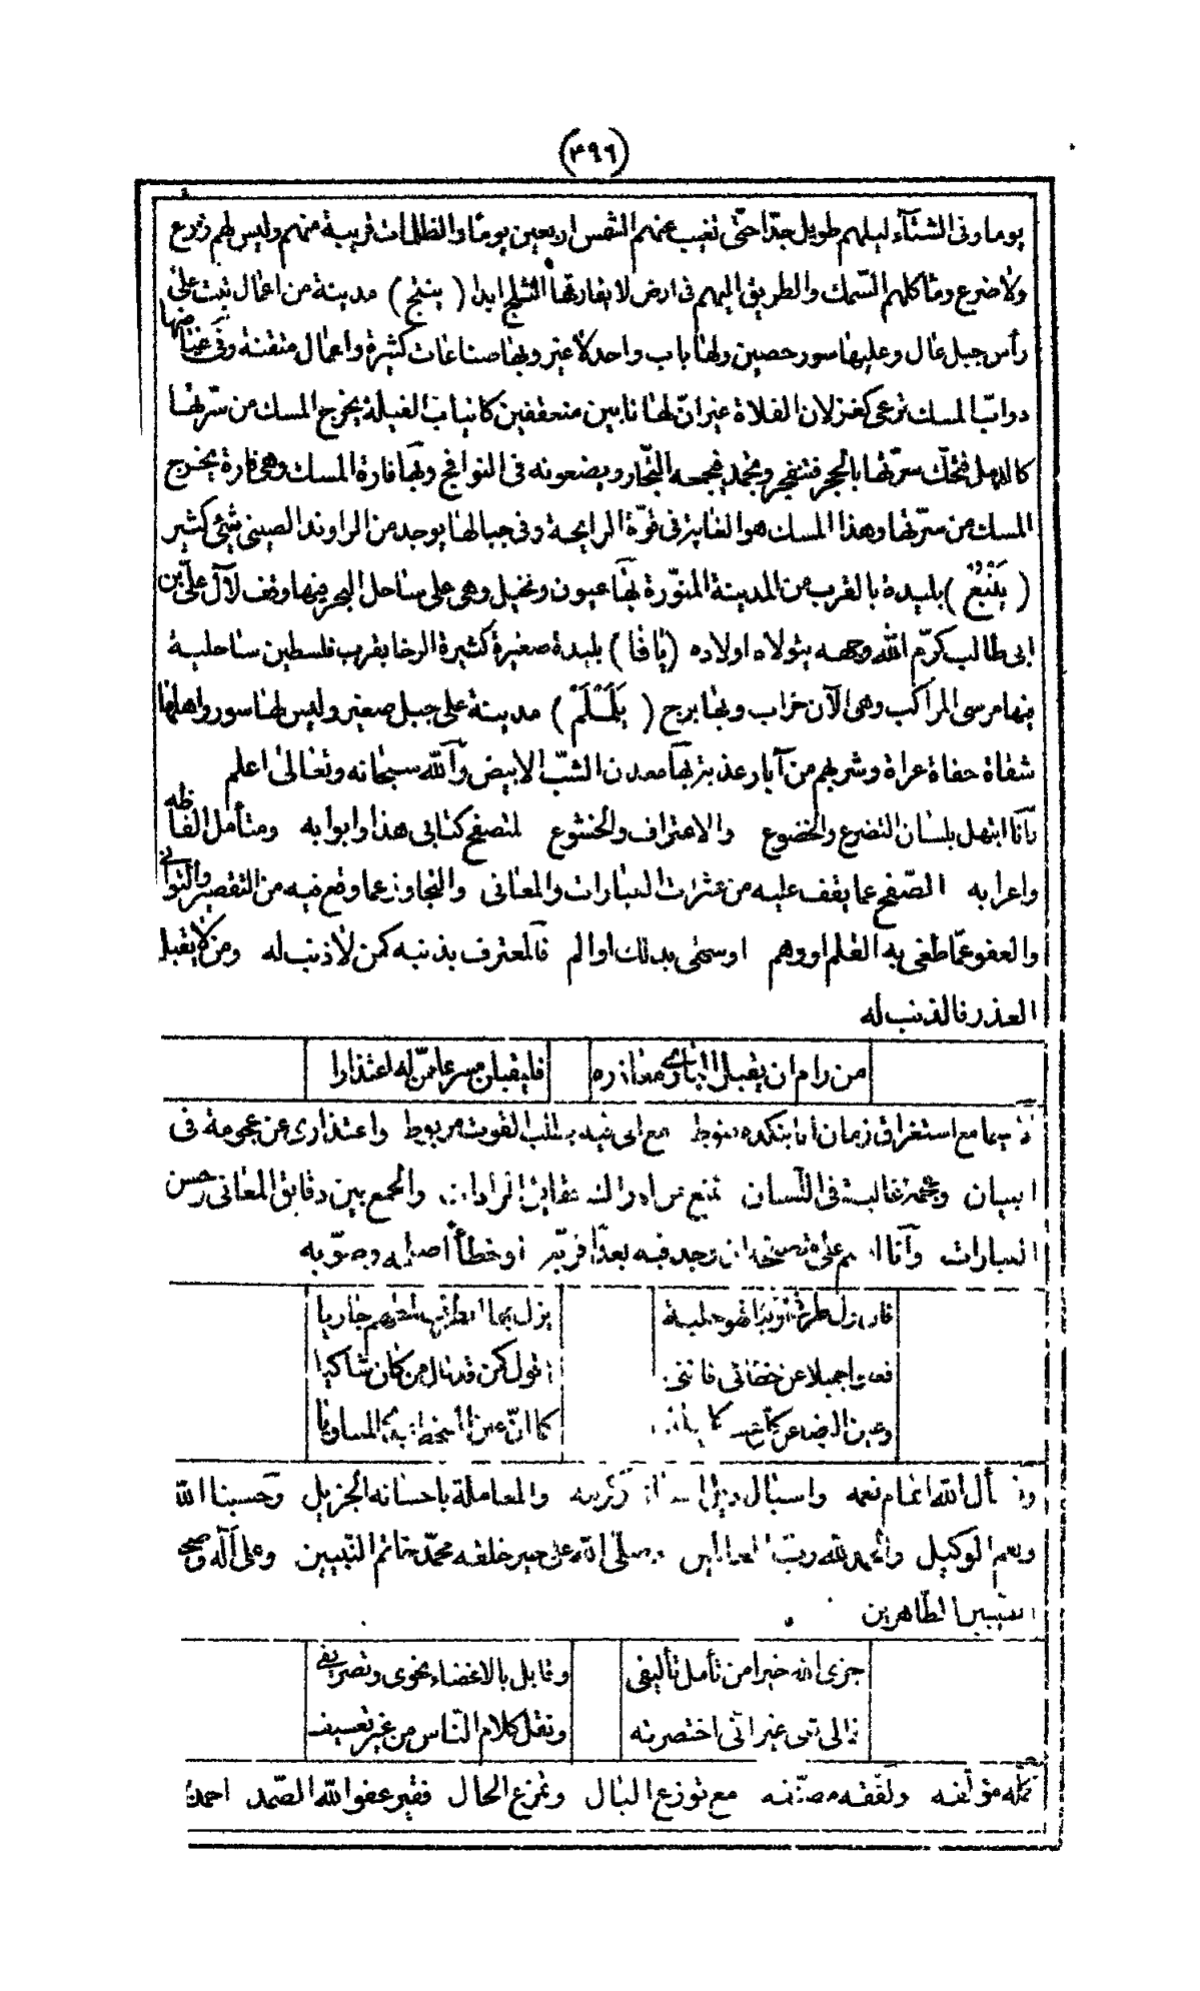 (٤٩٦)
يوما وفى الشتآء ليلهم طويل جدّا حتّى تغيب عنهم الشمس اربعين يومًا والظلمات قريبة منهم وليس لهم زرع
ولا ضرع ومأكلهم السّمك والطريق اليهم فى ارض لا يفارقها الثلج ابدا ( ينتج ) مدينة من اعمال تبت على
رأس جبل عال وعليها سور حصين ولها باب واحد لا غير وبها صناعات كثيرة واعمال متقنة وفى غياضها
دوابّ المسك ترعى كغزلان الفلاة غير انّ لها نابين منعقفين كانياب الفيلة يخرج المسك من سرّتها
كالدمل فتحكّ سرّتها بالحجر فتنفجر ويجمد فيجمعه التجّار ويضعونه فى النوافج وبها فارة المسك وهى فارة يخرج
المسك من سرّتها وهذا المسك هو الغاية فى قوّة الرايحة وفى جبالها يوجد من الراوند الصينى شئ كثير
( يَنْبُعُ ) بليدة بالقرب من المدينة المنوّرة بها عيون ونخيل وهى على ساحل البحر فيها وقف لآل علىّ بن
ابى طالب كرّم الله وجهه يتولاه اولاده (يافا) بليدة صغيرة كثيرة الرخا بقرب فلسطين ساحلية
بها مرسى المراكب وهى الآن خراب وبها برج ( يَلَمْلَمْ ) مدينة على جبل صغير وليس لها سور واهلها
شقاة حفاة عراة وشربهم من آبار عذبة بها معدن الشبّ الابيض والله سبحانه وتعالى اعلم
وانا ابتهل بلسان التضرع والخضوع والاعتراف والخشوع لمتصفح كتابى هذا وابوابه ومتأمل الفاظه
واعرابه الصّفح عما يقف عليه من عثرات العبارات والمعانى والتجاوز عما وقع فيه من التقصير والتوانى
والعفو عمّا طغى به القلم او وهم او سعى بدلك او الم فالمعترف بذنبه كمن لا ذنب له ومن لا يقبل
العذر فالذنب له
من رام ان يقبل البارى معاذره فليقبلن مسرعا ممّن له اعتذارا
مع استغراق زمان واعتذارى عن عجومة فى
وعجمة غالبة فى اللسان تمنع والجمع بين دقايق المعانى وحسن
العبارات وانا على متصفحه ان وجد فيه بعدا قربه او خطأ اصلحه وصوّبه
يزل بها
جميلا عن خطائى فاننى اقول كمن قد قال من كان شاكيا
وعين الرضا عن كل عيب كما ان عين السخط تبدى المساويا
ونسأل الله اتمام نعمه واسبال والمعاملة باحسانه الجزيل وحسبنا الله
ونعم الوكيل والحمد لله ربّ العالمين وصلى الله على خير خلقه محمّد خاتم النّبيين وعلى آله وصحبه
الطيبين الطّاهرين
جزى الله خيرا من تأمل تأليفى وقابل بالاغضاء نحوى وتصريفى
غير انى اختصرته ونقل كلام النّاس من غير تعسيف
مؤلّفه ولفّقه مصنّفه مع توزع البال وتمزع الحال فقير عفو الله الصّمد احمد